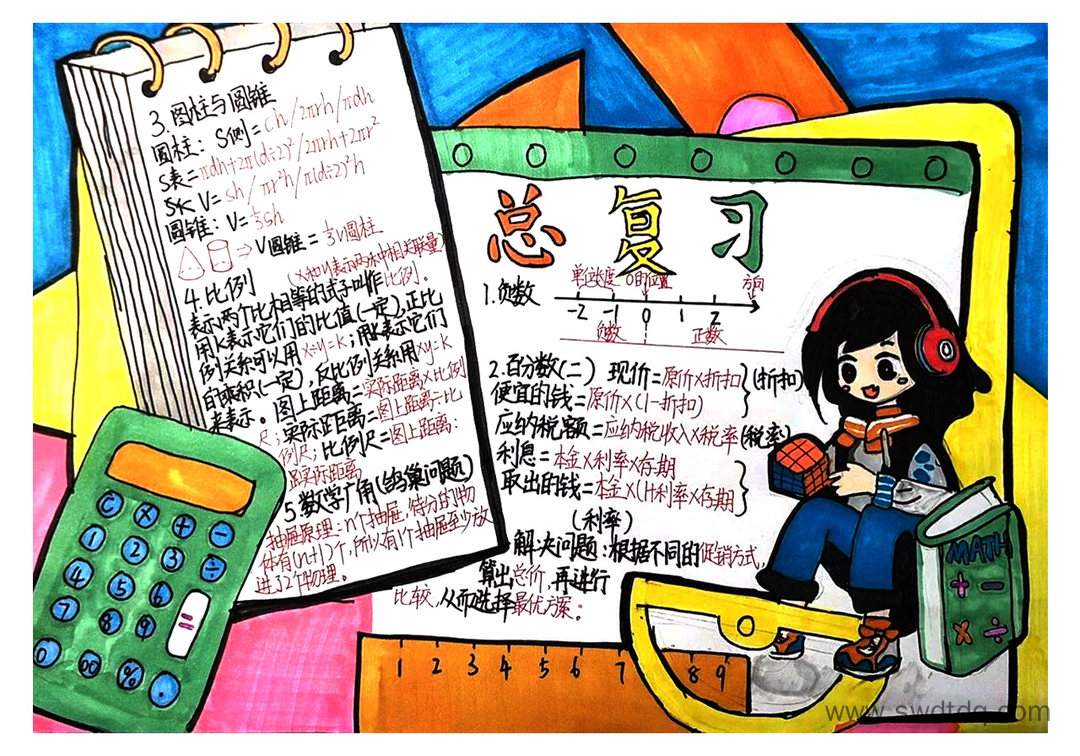 3.圆柱与圆锥
圆柱：S侧=ch/2πrh/πdh
S表=πdh+2π(d÷2)²/2πrh+2πr²
V=sh/πr²h/π(d÷2)²h
圆锥：V=⅓sh
⇒V圆锥=⅓V圆柱
4.比例
(x和y表示两种相关联量)
表示两个比相等的式子叫作比例。
用K表示它们的比值(一定),正比
例关系可以用x÷y=k;用k表示它们
的乘积(一定),反比例关系用xy=k
来表示。图上距离=实际距离×比例
尺;实际距离=图上距离÷比
例尺;比例尺=图上距离:
实际距离
5.数学广角(鸽巢问题)
抽屉原理:n个抽屉,待分的物
体有(n+1)个,所以有1个抽屉至少放
进了2个物理。
C × + -
1 2 3 ÷
4 5 6
7 8 9 =
0 00 % .
总复习
单位长度 0的位置 方向
1.负数
-2 -1 0 1 2
负数 正数
2.百分数(二) 现价=原价×折扣 (折扣)
便宜的钱=原价×(1-折扣)
应纳税额=应纳税收入×税率(税率)
利息=本金×利率×存期
取出的钱=本金×(1+利率×存期
(利率)
解决问题:根据不同的促销方式,
算出总价,再进行
比较,从而选择最优方案。
MATH
+ -
× ÷
0
1 2 3 4 5 6 7 8 9
www.swdtdq.com